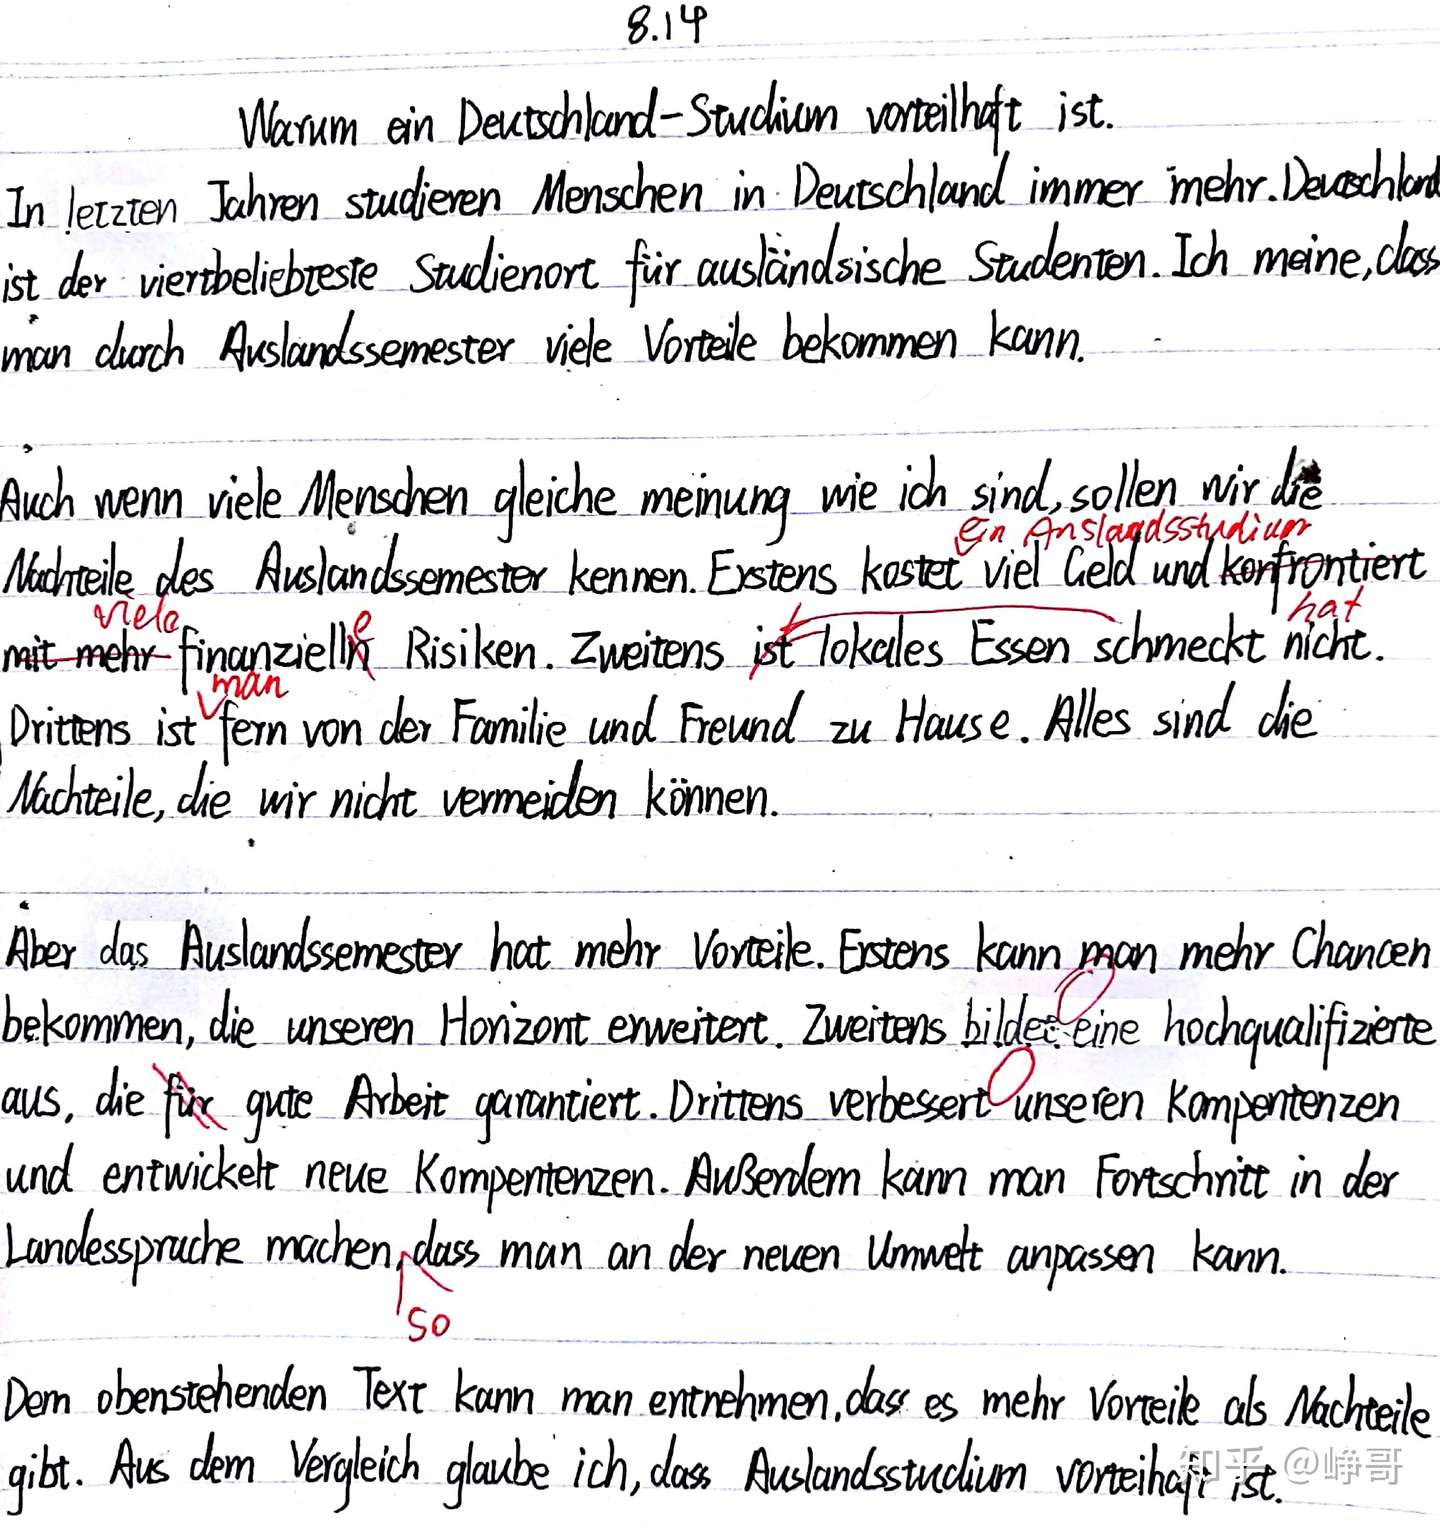 8.14
Warum ein Deutschland-Studium vorteilhaft ist.
In letzten Jahren studieren Menschen in Deutschland immer mehr. Deutschland
ist der viertbeliebteste Studienort für ausländsische Studenten. Ich meine, dass
man durch Auslandssemester viele Vorteile bekommen kann.
Auch wenn viele Menschen gleiche meinung wie ich sind, sollen wir die
ein Auslandsstudium
Nachteile des Auslandssemester kennen. Erstens kostet viel Geld und konfrontiert
viele e hat
mit mehr finanzielln Risiken. Zweitens ist lokales Essen schmeckt nicht.
man
Drittens ist fern von der Familie und Freund zu Hause. Alles sind die
Nachteile, die wir nicht vermeiden können.
Aber das Auslandssemester hat mehr Vorteile. Erstens kann man mehr Chancen
bekommen, die unseren Horizont erweitert. Zweitens bildet eine hochqualifizierte
aus, die für gute Arbeit garantiert. Drittens verbessert unseren Kompentenzen
und entwickelt neue Kompentenzen. Außerdem kann man Fortschritt in der
Landessprache machen, dass man an der neuen Umwelt anpassen kann.
so
Dem obenstehenden Text kann man entnehmen, dass es mehr Vorteile als Nachteile
gibt. Aus dem Vergleich glaube ich, dass Auslandsstudium vorteihaft ist.
知乎 @峥哥